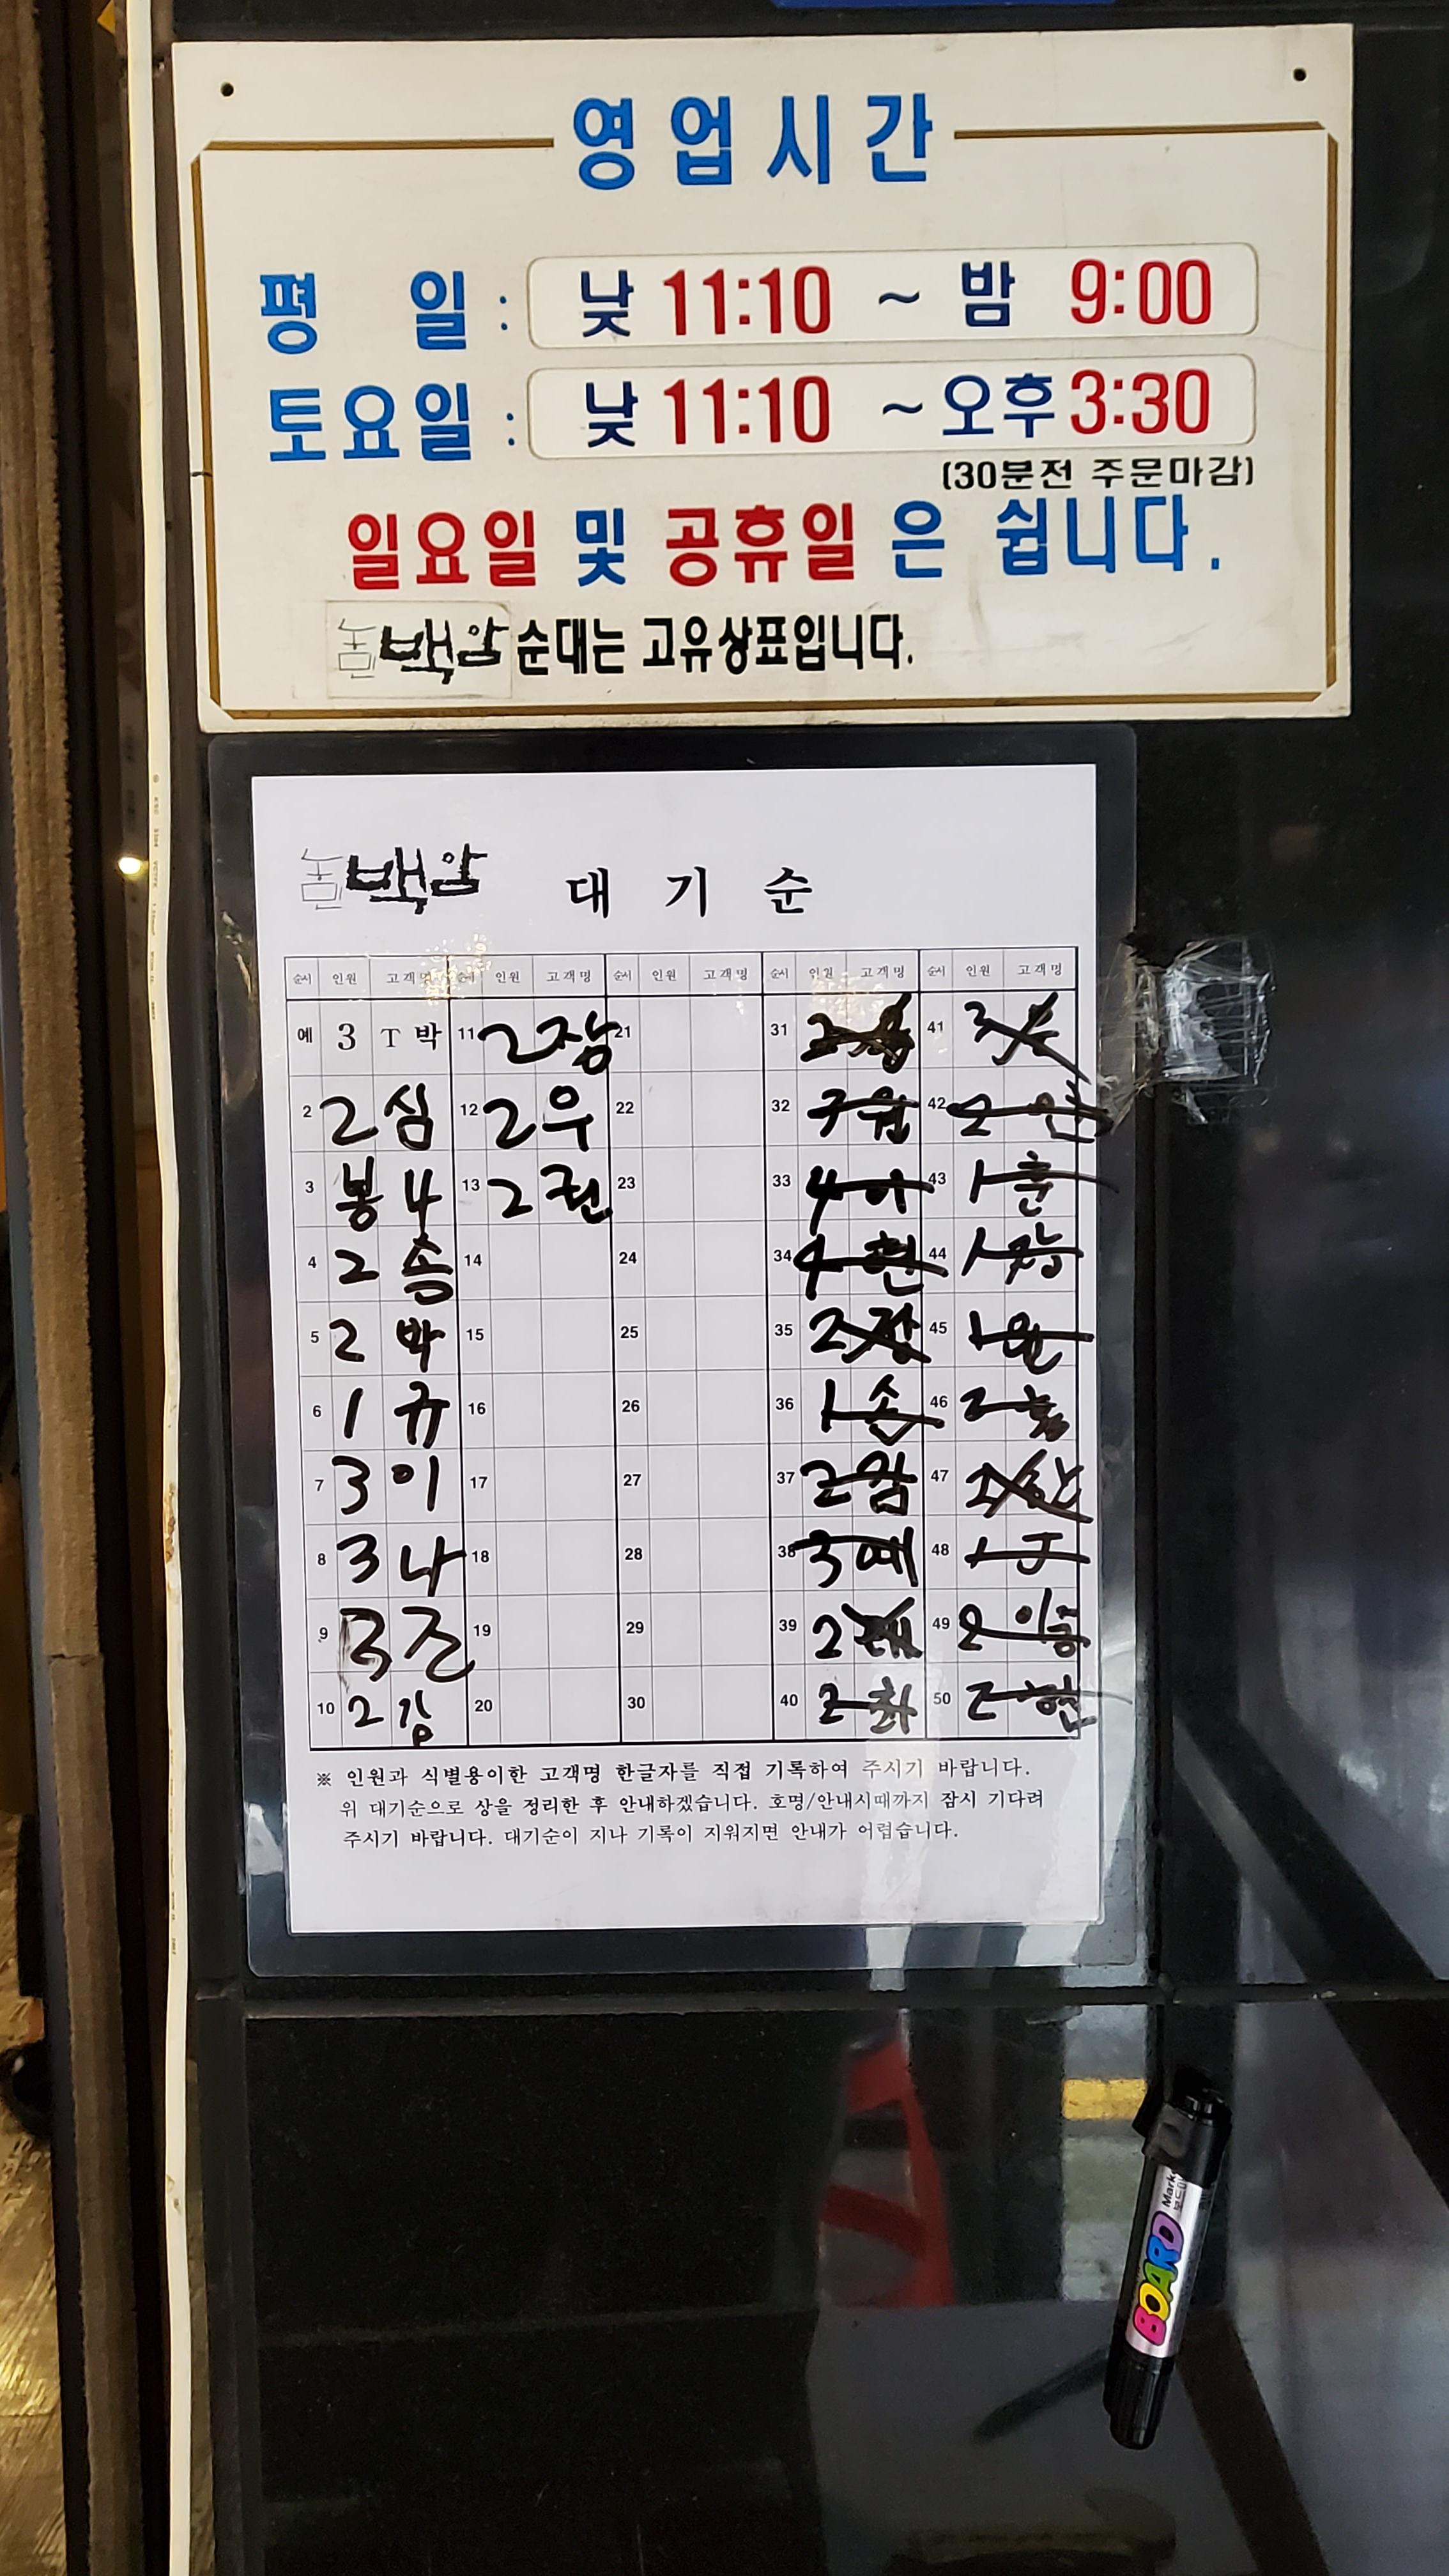 영업시간
평 일 : 낮 11:10 ~ 밤 9:00
토요일 : 낮 11:10 ~ 오후 3:30
(30분전 주문마감)
일요일 및 공휴일은 쉽니다.
백암 순대는 고유상표입니다.
백암 대 기 순
순시 인원 고객명 순시 인원 고객명 순시 인원 고객명 순시 인원 고객명 순시 인원 고객명
예 3 T 박 11 2 장 21 31 2 41 3
2 2 심 12 2 우 22 32 42 2
3 봉 4 13 2 권 23 33 4 이 43 1
4 2 송 14 24 34 4 현 44 1
5 2 박 15 25 35 2 45 1
6 1 규 16 26 36 1 손 46 2
7 3 이 17 27 37 2 47 2
8 3 나 18 28 38 3 예 48 1 J
9 3 조 19 29 39 2 49 2 이승
10 2 김 20 30 40 2 50 2 현
※ 인원과 식별용이한 고객명 한글자를 직접 기록하여 주시기 바랍니다.
위 대기순으로 상을 정리한 후 안내하겠습니다. 호명/안내시때까지 잠시 기다려
주시기 바랍니다. 대기순이 지나 기록이 지워지면 안내가 어렵습니다.
BOARD